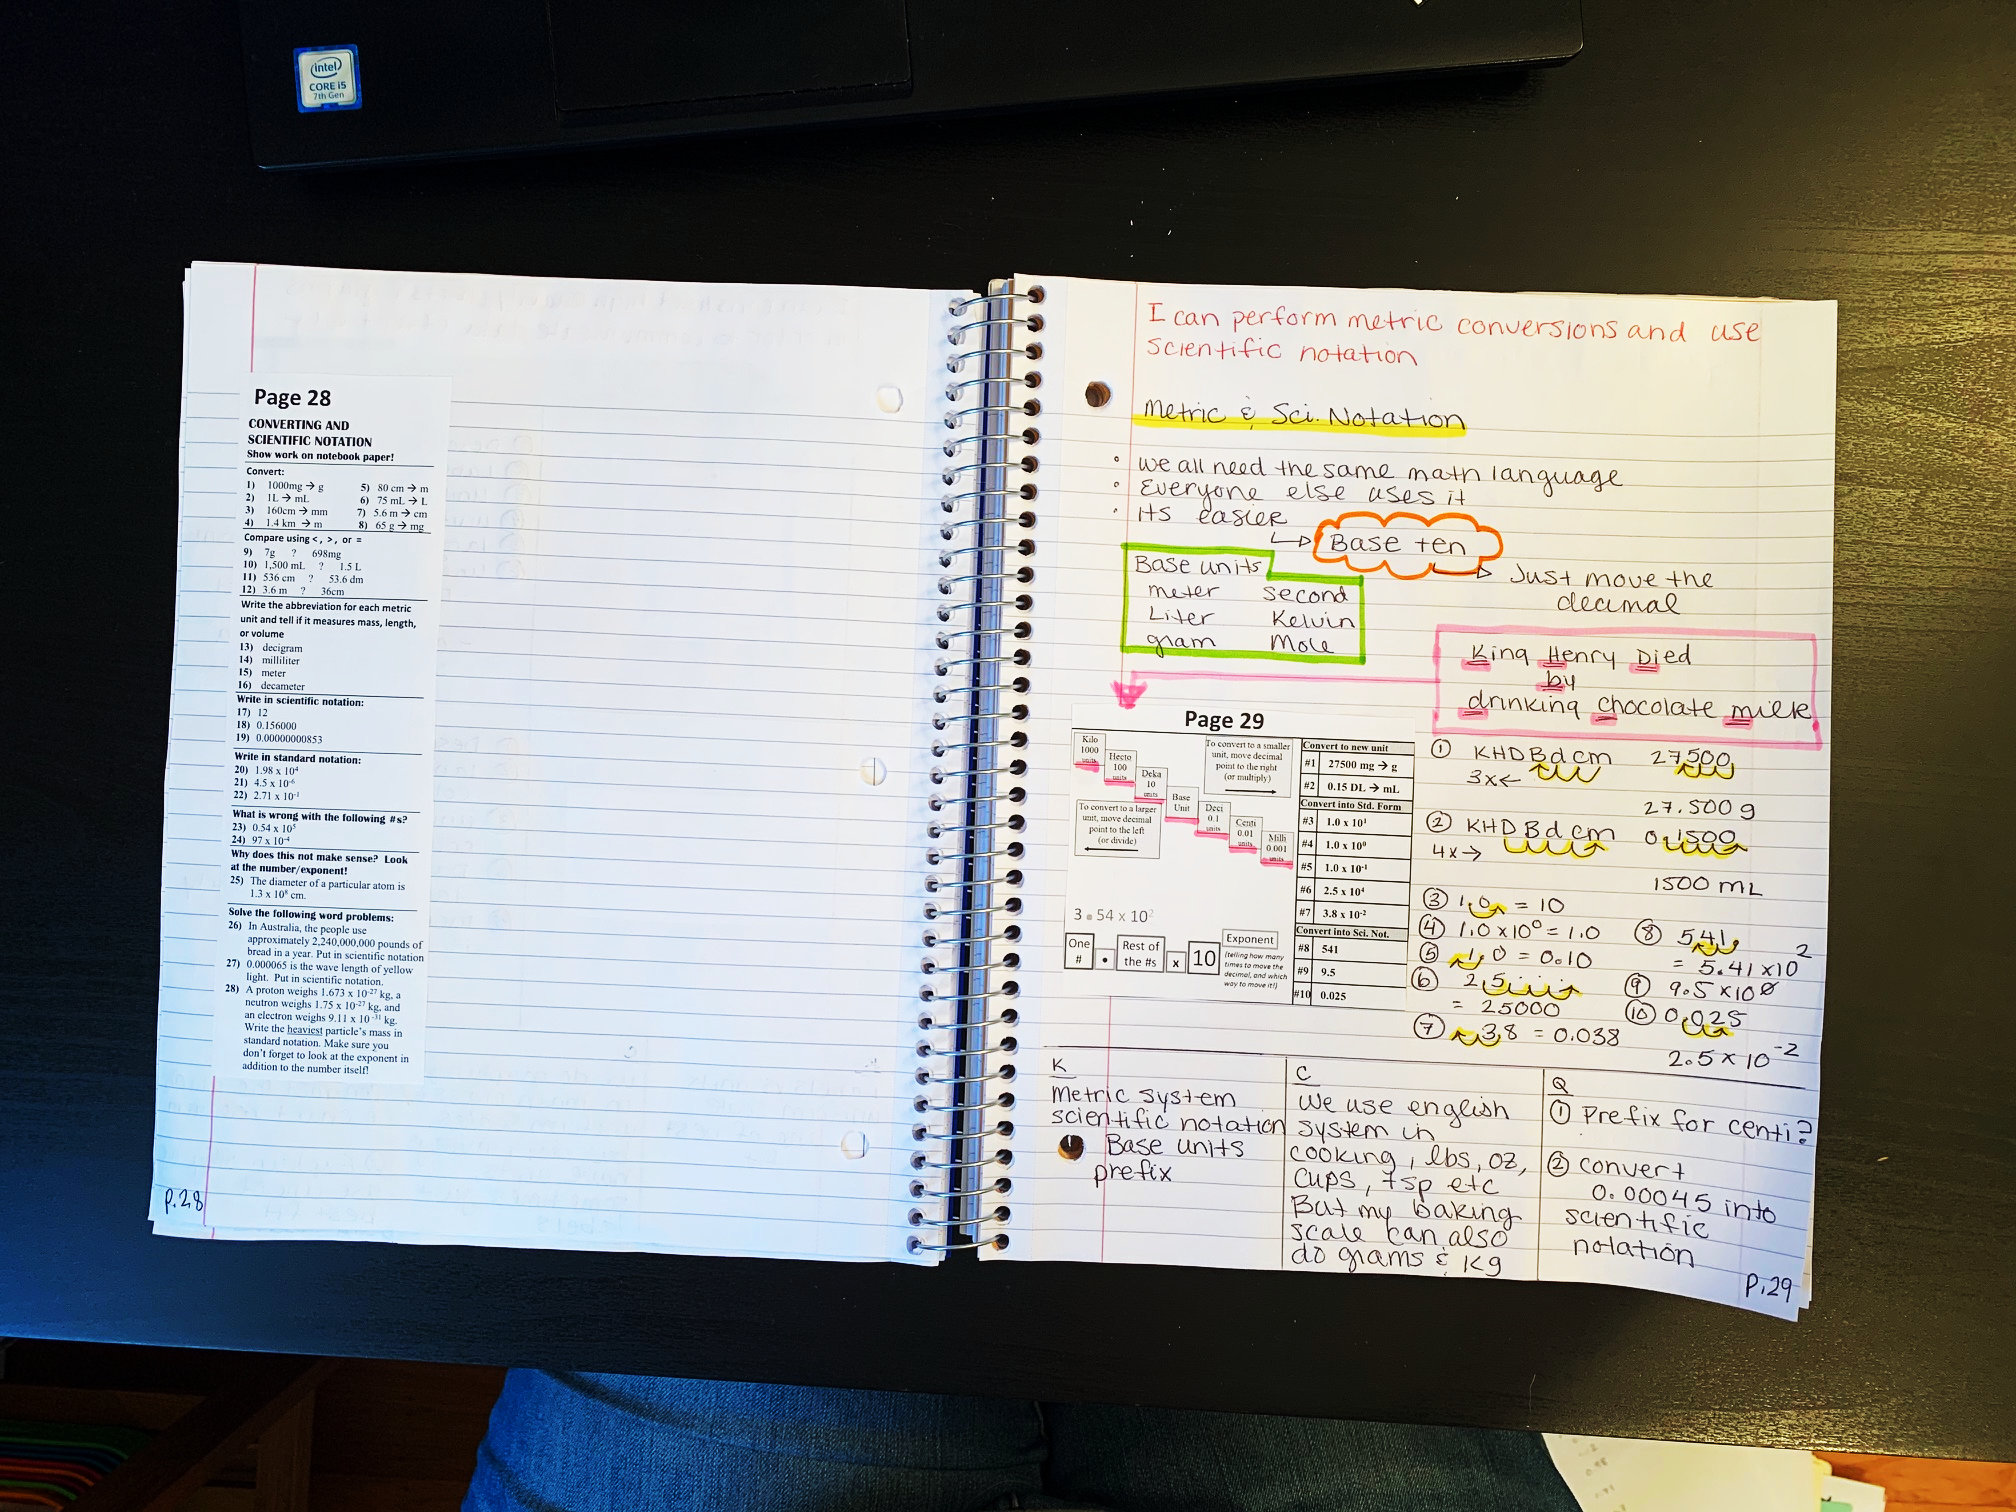 intel
CORE i5
7th Gen
Page 28
CONVERTING AND
SCIENTIFIC NOTATION
Show work on notebook paper!
Convert:
1) 1000mg → g
2) 1L → mL
3) 160cm → mm
4) 1.4 km → m
5) 80 cm → m
6) 75 mL → L
7) 5.6 m → cm
8) 65 g → mg
Compare using <, >, or =
9) 7g ? 698mg
10) 1,500 mL ? 1.5 L
11) 536 cm ? 53.6 dm
12) 3.6 m ? 36cm
Write the abbreviation for each metric
unit and tell if it measures mass, length,
or volume
13) decigram
14) milliliter
15) meter
16) decameter
Write in scientific notation:
17) 12
18) 0.156000
19) 0.00000000853
Write in standard notation:
20) 1.98 x 10⁴
21) 4.5 x 10⁻⁶
22) 2.71 x 10⁻¹
What is wrong with the following #s?
23) 0.54 x 10⁵
24) 97 x 10⁻⁴
Why does this not make sense? Look
at the number/exponent!
25) The diameter of a particular atom is
1.3 x 10⁸ cm.
Solve the following word problems:
26) In Australia, the people use
approximately 2,240,000,000 pounds of
bread in a year. Put in scientific notation
27) 0.000065 is the wave length of yellow
light. Put in scientific notation.
28) A proton weighs 1.673 x 10⁻²⁷ kg, a
neutron weighs 1.75 x 10⁻²⁷ kg, and
an electron weighs 9.11 x 10⁻³¹ kg.
Write the heaviest particle's mass in
standard notation. Make sure you
don't forget to look at the exponent in
addition to the number itself!
P.28
I can perform metric conversions and use
scientific notation
Metric & Sci. Notation
• we all need the same math language
• Everyone else uses it
• its easier
↳ Base ten
→ Just move the
decimal
Base units
meter second
Liter Kelvin
gram Mole
King Henry Died
by
drinking chocolate milk
Page 29
Kilo
1000
units
Hecto
100
units
Deka
10
units
Base
Unit
Deci
0.1
units
Centi
0.01
units
Milli
0.001
units
To convert to a smaller
unit, move decimal
point to the right
(or multiply)
To convert to a larger
unit, move decimal
point to the left
(or divide)
3.54 x 10²
One
#
.
Rest of
the #s
x
10
Exponent
(telling how many
times to move the
decimal, and which
way to move it!)
Convert to new unit
#1 27500 mg → g
#2 0.15 DL → mL
Convert into Std. Form
#3 1.0 x 10¹
#4 1.0 x 10⁰
#5 1.0 x 10⁻¹
#6 2.5 x 10⁴
#7 3.8 x 10⁻²
Convert into Sci. Not.
#8 541
#9 9.5
#10 0.025
① KHDBdcm 27500
3x←
27.500 g
② KHDBdcm 0.1500
4x→
1500 mL
③ 1.0 = 10
④ 1.0 x 10⁰ = 1.0
⑤ 1.0 = 0.10
⑥ 2.5
= 25000
⑦ 3.8 = 0.038
⑧ 541.
= 5.41 x 10²
⑨ 9.5 x 10⁰
⑩ 0.025
2.5 x 10⁻²
K
Metric system
scientific notation
Base units
prefix
C
We use english
system in
cooking, lbs, oz,
cups, tsp etc
But my baking
scale can also
do grams & Kg
Q
① Prefix for centi?
② convert
0.00045 into
scientific
notation
P.29